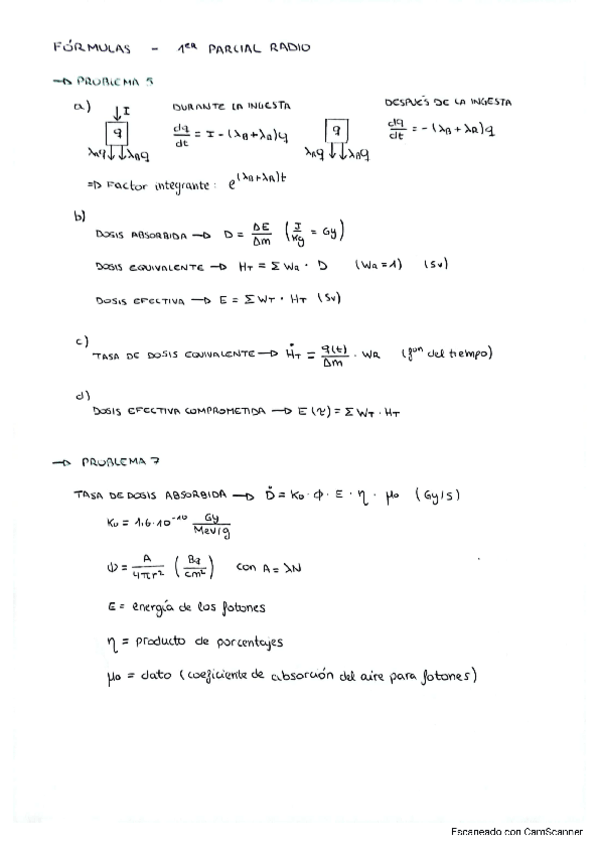 FÓRMULAS - 1er PARCIAL RADIO
→ PROBLEMA 5
a) DURANTE LA INGESTA DESPUÉS DE LA INGESTA
↓I
q dq/dt = I - (λB+λR)q q dq/dt = - (λB+λR)q
λRq ↓↓ λBq λRq ↓↓ λBq
⇒ Factor integrante: e^(λB+λR)t
b)
DOSIS ABSORBIDA → D = ΔE/Δm (J/Kg = Gy)
DOSIS EQUIVALENTE → HT = Σ WR · D (WR = 1) (Sv)
DOSIS EFECTIVA → E = Σ WT · HT (Sv)
c)
TASA DE DOSIS EQUIVALENTE → ḢT = q(t)/Δm · WR (fon del tiempo)
d)
DOSIS EFECTIVA COMPROMETIDA → E(τ) = Σ WT · HT
→ PROBLEMA 7
TASA DE DOSIS ABSORBIDA → Ḋ = K0 · ϕ · E · η · μa (Gy/s)
K0 = 1.6·10^-10 Gy/MeV/g
ϕ = A/4πr² (Bq/cm²) con A = λN
E = energía de los fotones
η = producto de porcentajes
μa = dato (coeficiente de absorción del aire para fotones)
Escaneado con CamScanner